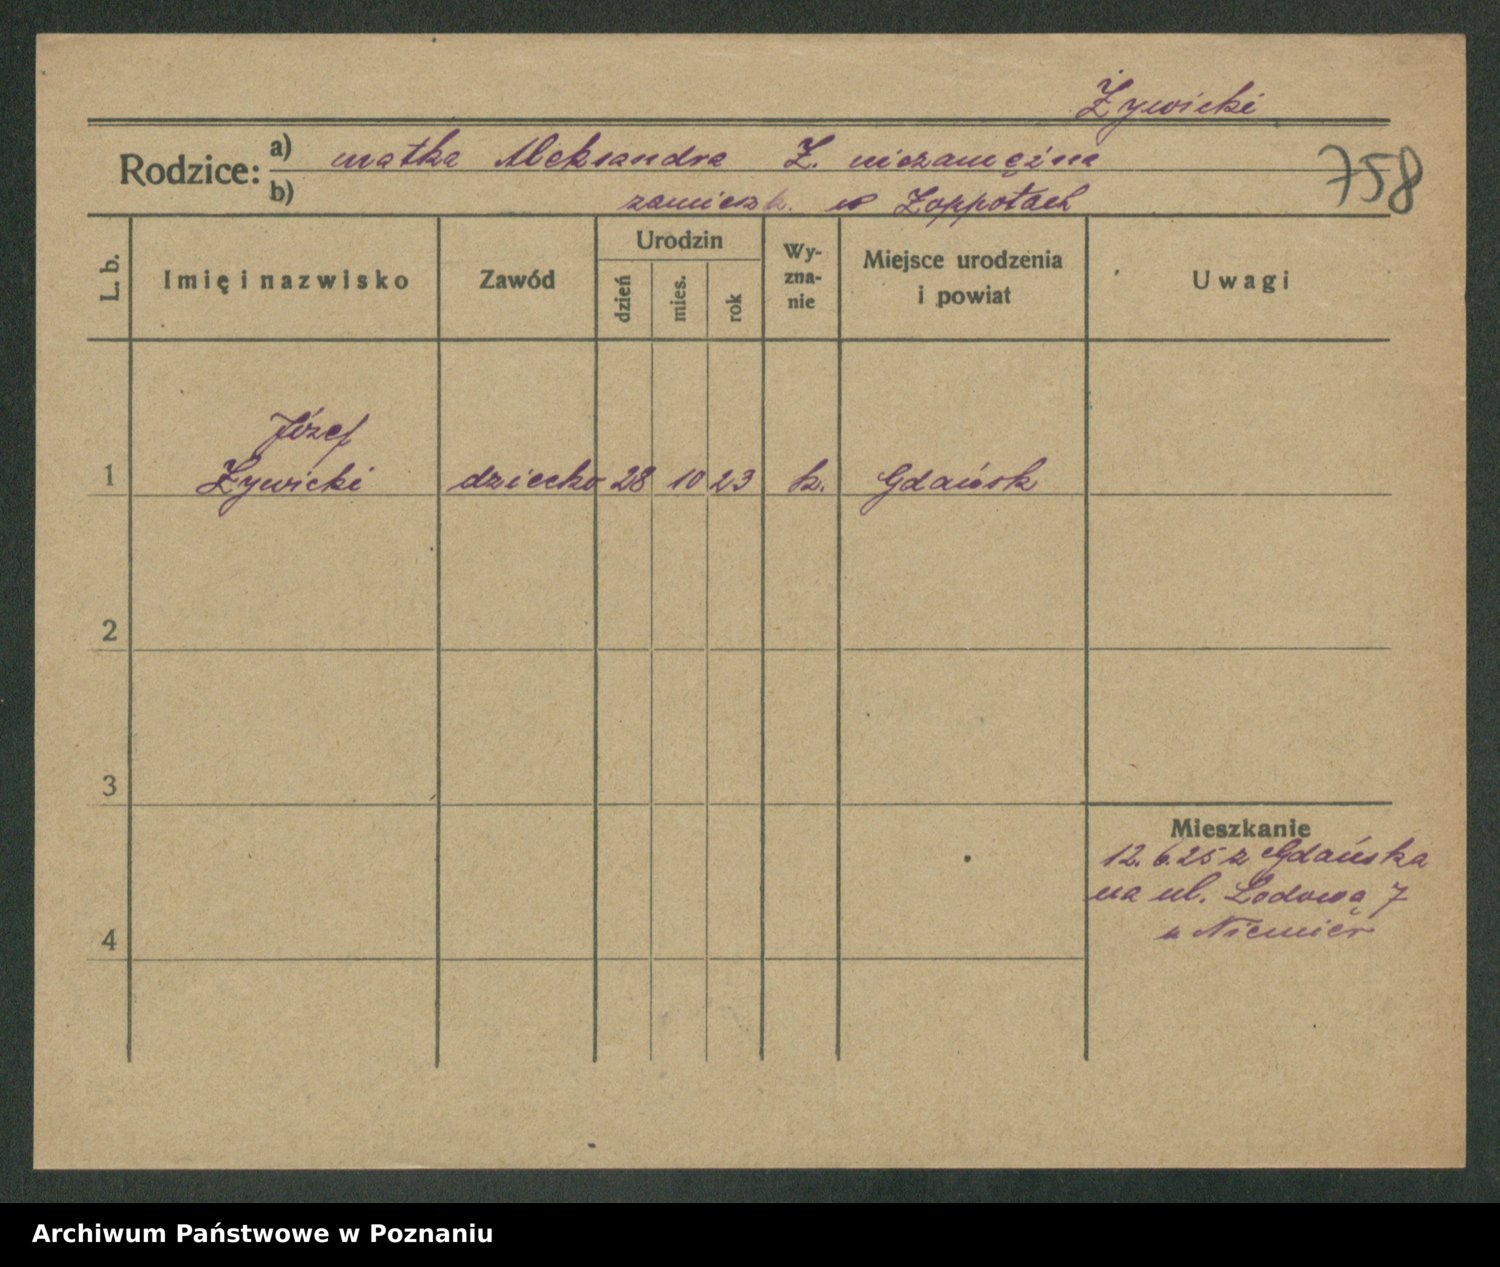 Żywicki
Rodzice: a) matka Aleksandra Ż. niezamężna
758
b) zamieszk. w Zoppotach
L. b.
Imię i nazwisko
Zawód
Urodzin
dzień
mies.
rok
Wy-
zna-
nie
Miejsce urodzenia
i powiat
Uwagi
Józef
1 Żywicki dziecko 28 10 23 k. Gdańsk
2
3
Mieszkanie
12. 6. 25 z Gdańska
na ul. Lodową 7
u Niemier
4
Archiwum Państwowe w Poznaniu